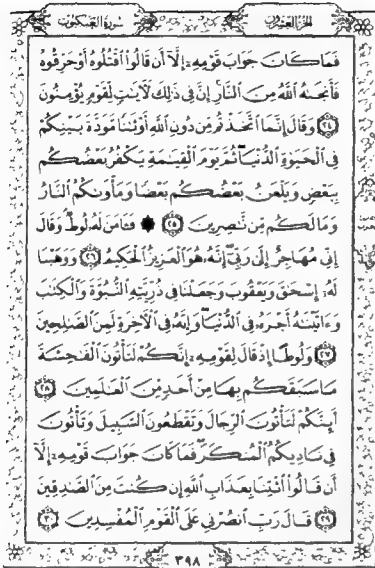 الجزء العشرون
سورة العنكبوت
فَمَا كَانَ جَوَابَ قَوْمِهِۦٓ إِلَّآ أَن قَالُوا۟ ٱقْتُلُوهُ أَوْ حَرِّقُوهُ
فَأَنجَىٰهُ ٱللَّهُ مِنَ ٱلنَّارِ ۚ إِنَّ فِى ذَٰلِكَ لَـَٔايَٰتٍ لِّقَوْمٍ يُؤْمِنُونَ
﴿٢٤﴾ وَقَالَ إِنَّمَا ٱتَّخَذْتُم مِّن دُونِ ٱللَّهِ أَوْثَٰنًا مَّوَدَّةَ بَيْنِكُمْ
فِى ٱلْحَيَوٰةِ ٱلدُّنْيَا ۖ ثُمَّ يَوْمَ ٱلْقِيَٰمَةِ يَكْفُرُ بَعْضُكُم
بِبَعْضٍ وَيَلْعَنُ بَعْضُكُم بَعْضًا وَمَأْوَىٰكُمُ ٱلنَّارُ
وَمَا لَكُم مِّن نَّٰصِرِينَ ﴿٢٥﴾ ۞ فَـَٔامَنَ لَهُۥ لُوطٌ ۘ وَقَالَ
إِنِّى مُهَاجِرٌ إِلَىٰ رَبِّىٓ ۖ إِنَّهُۥ هُوَ ٱلْعَزِيزُ ٱلْحَكِيمُ ﴿٢٦﴾ وَوَهَبْنَا
لَهُۥٓ إِسْحَٰقَ وَيَعْقُوبَ وَجَعَلْنَا فِى ذُرِّيَّتِهِ ٱلنُّبُوَّةَ وَٱلْكِتَٰبَ
وَءَاتَيْنَٰهُ أَجْرَهُۥ فِى ٱلدُّنْيَا ۖ وَإِنَّهُۥ فِى ٱلْـَٔاخِرَةِ لَمِنَ ٱلصَّٰلِحِينَ
﴿٢٧﴾ وَلُوطًا إِذْ قَالَ لِقَوْمِهِۦٓ إِنَّكُمْ لَتَأْتُونَ ٱلْفَٰحِشَةَ
مَا سَبَقَكُم بِهَا مِنْ أَحَدٍ مِّنَ ٱلْعَٰلَمِينَ ﴿٢٨﴾
أَئِنَّكُمْ لَتَأْتُونَ ٱلرِّجَالَ وَتَقْطَعُونَ ٱلسَّبِيلَ وَتَأْتُونَ
فِى نَادِيكُمُ ٱلْمُنكَرَ ۖ فَمَا كَانَ جَوَابَ قَوْمِهِۦٓ إِلَّآ
أَن قَالُوا۟ ٱئْتِنَا بِعَذَابِ ٱللَّهِ إِن كُنتَ مِنَ ٱلصَّٰدِقِينَ
﴿٢٩﴾ قَالَ رَبِّ ٱنصُرْنِى عَلَى ٱلْقَوْمِ ٱلْمُفْسِدِينَ ﴿٣٠﴾
٣٩٨